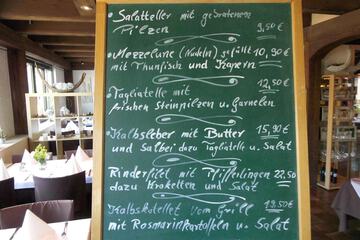 • Salatteller mit gebratenen
Pilzen 9,50 €
• Mezzelune (Nudeln) gefüllt 10,90 €
mit Thunfisch und Kapern
• Tagliatelle mit 12,50 €
frischen Steinpilzen u. Garnelen
• Kalbsleber mit Butter 15,90 €
und Salbei dazu Tagliatelle u. Salat
• Rinderfilet mit Pfifferlingen 22,50
dazu Kroketten und Salat
• Kalbskotelett vom Grill 19,50 €
mit Rosmarinkartoffeln u. Salat